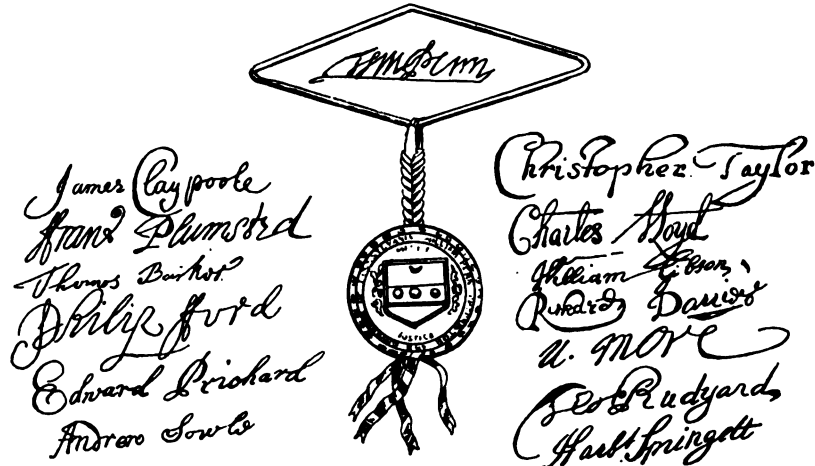 Wm Penn
James Claypoole
Franz Plumsted
Thomas Barker
Philip Ford
Edward Prichard
Andrew Sowle
Christopher Taylor
Charles Lloyd
William Gibson
Richard Davies
N. More
Geo: Rudyard
Harbt Springett
JUSTICE